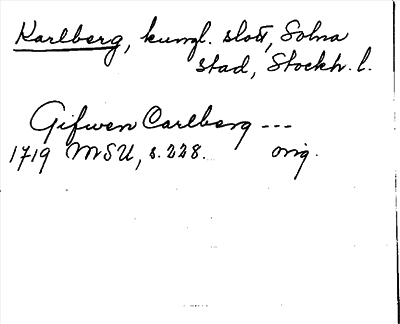 Karlberg, kungl. slott, Solna
stad, Stockh. l.
Gifwen Carlberg ---
1719 MSU, s. 228. orig.